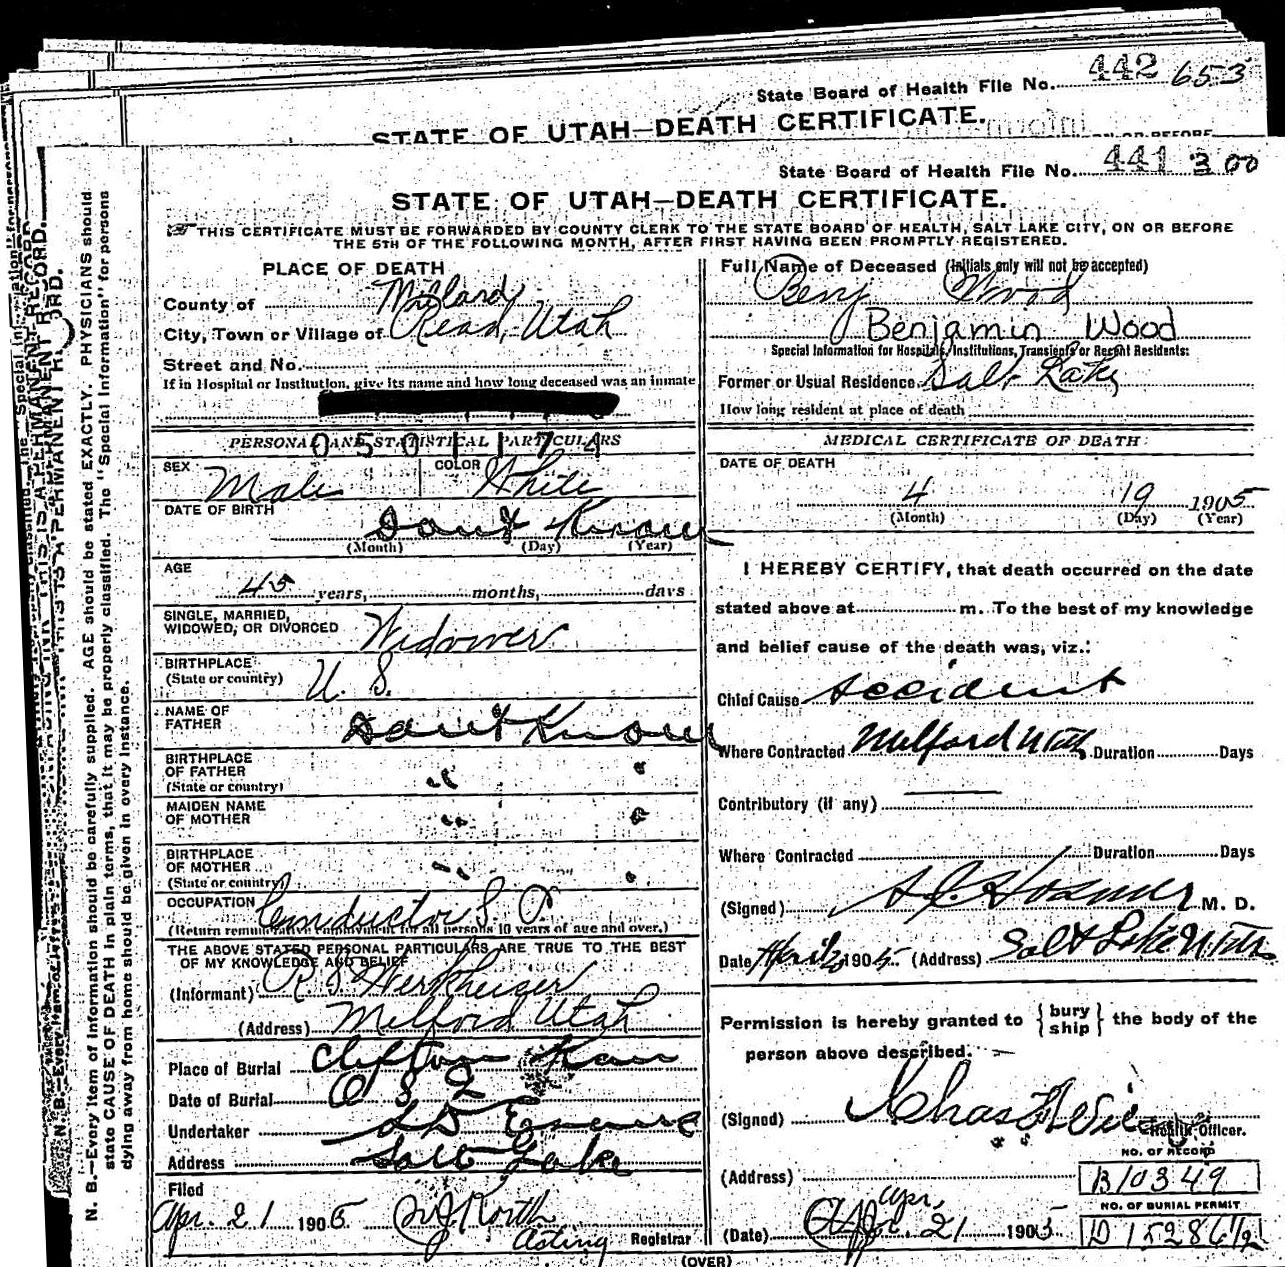 442 653
State Board of Health File No.
STATE OF UTAH—DEATH CERTIFICATE.
ON OR BEFORE
State Board of Health File No. 441 300
STATE OF UTAH—DEATH CERTIFICATE.
THIS CERTIFICATE MUST BE FORWARDED BY COUNTY CLERK TO THE STATE BOARD OF HEALTH, SALT LAKE CITY, ON OR BEFORE
THE 5TH OF THE FOLLOWING MONTH, AFTER FIRST HAVING BEEN PROMPTLY REGISTERED.
N. B.—Every item of information should be carefully supplied. AGE should be stated EXACTLY. PHYSICIANS should
state CAUSE OF DEATH in plain terms, that it may be properly classified. The "Special Information" for persons
dying away from home should be given in every instance.
PLACE OF DEATH
County of Millard
City, Town or Village of Read, Utah
Street and No.
If in Hospital or Institution, give its name and how long deceased was an inmate
PERSONAL AND STATISTICAL PARTICULARS
0501174
SEX Male COLOR White
DATE OF BIRTH Dont Know
(Month) (Day) (Year)
AGE
45 years, months, days
SINGLE, MARRIED,
WIDOWED, OR DIVORCED Widower
BIRTHPLACE
(State or country) U. S.
NAME OF
FATHER Dont Know
BIRTHPLACE
OF FATHER
(State or country) " "
MAIDEN NAME
OF MOTHER " "
BIRTHPLACE
OF MOTHER
(State or country) " "
OCCUPATION Conductor S. P.
(Return remunerative employment for all persons 10 years of age and over.)
THE ABOVE STATED PERSONAL PARTICULARS ARE TRUE TO THE BEST
OF MY KNOWLEDGE AND BELIEF
(Informant) R. S. Werkheiser
(Address) Milford Utah
Place of Burial Clifton Kan
Date of Burial
Undertaker
Address Salt Lake
Filed
Apr. 21 1905
Acting Registrar
Full Name of Deceased (Initials only will not be accepted)
Benj Wood
Benjamin Wood
Special Information for Hospitals, Institutions, Transients or Recent Residents:
Former or Usual Residence Salt Lake
How long resident at place of death
MEDICAL CERTIFICATE OF DEATH
DATE OF DEATH
4 19 1905
(Month) (Day) (Year)
I HEREBY CERTIFY, that death occurred on the date
stated above at m. To the best of my knowledge
and belief cause of the death was, viz.:
Chief Cause Accident
Where Contracted Milford Utah Duration Days
Contributory (if any)
Where Contracted Duration Days
(Signed) Hosmer M. D.
Date April 20 1905. (Address) Salt Lake Utah
Permission is hereby granted to {bury
ship} the body of the
person above described.
(Signed) Chas
Health Officer.
NO. OF RECORD
(Address) B10349
NO. OF BURIAL PERMIT
(Date) Apr. 21 1905 D 15286 1/2
(OVER)